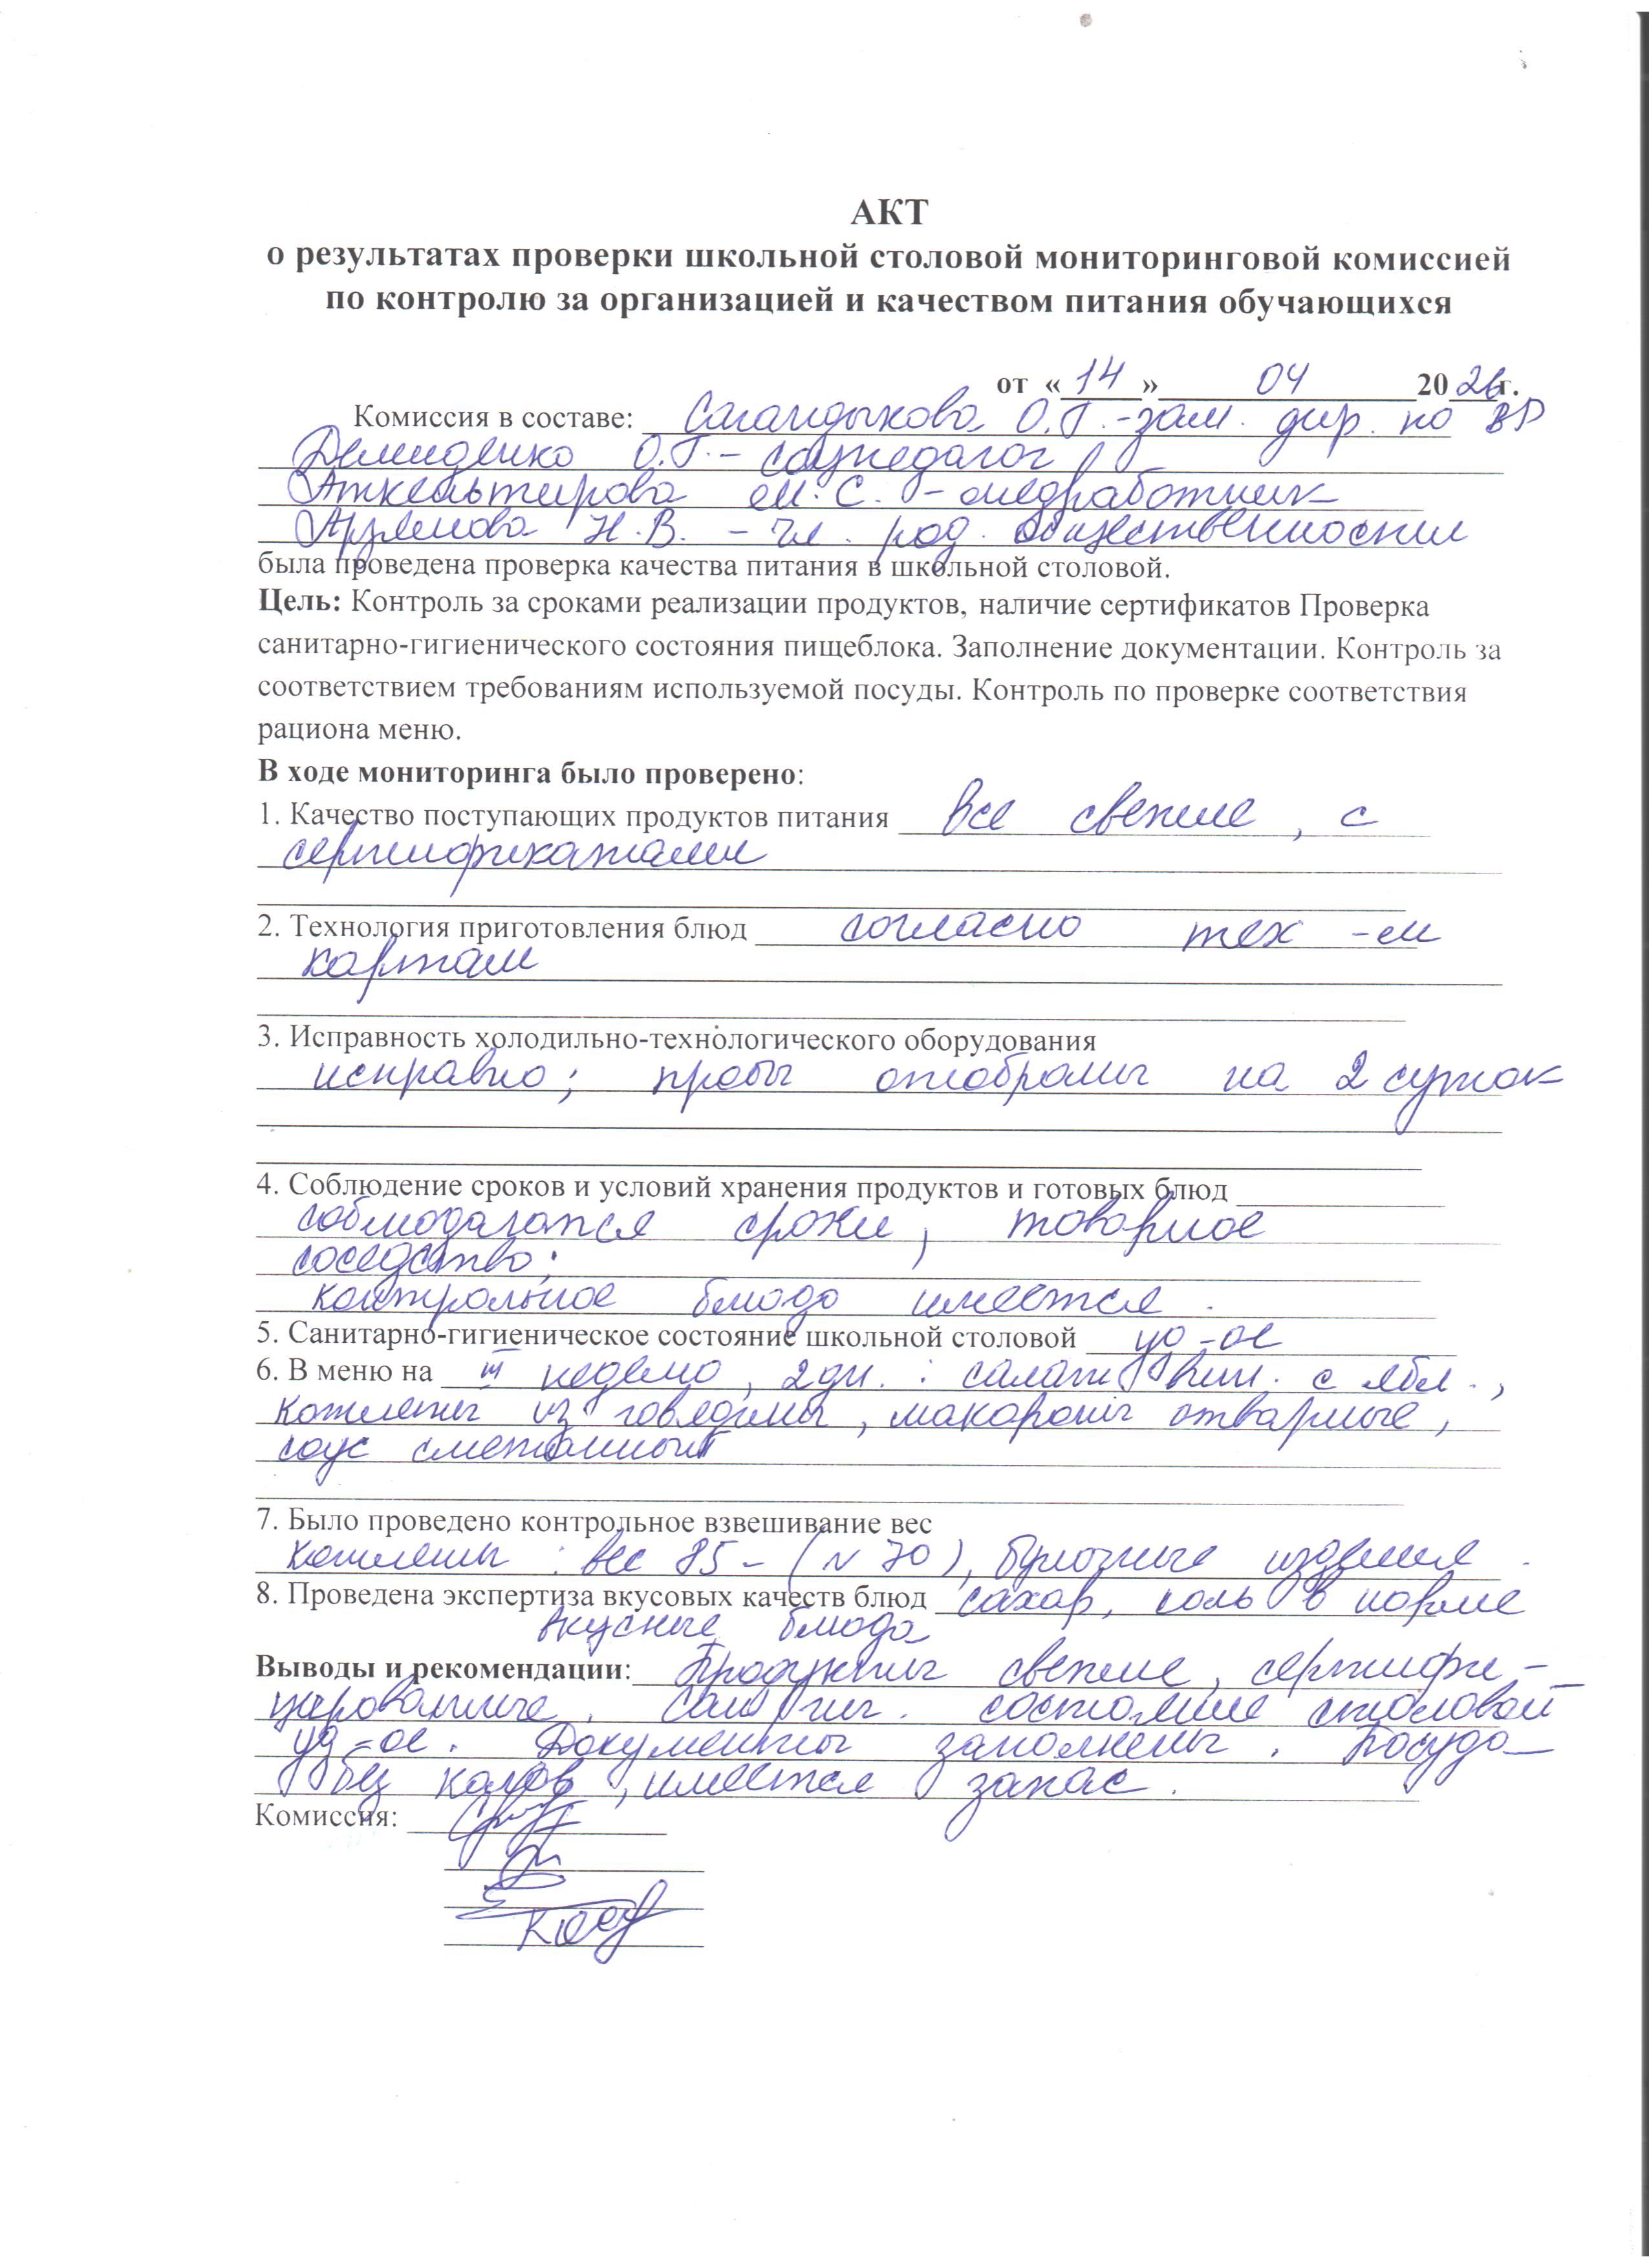 АКТ
о результатах проверки школьной столовой мониторинговой комиссией
по контролю за организацией и качеством питания обучающихся
от «14» 04 2026г.
Комиссия в составе: Сагандыкова О.Г.-зам. дир. по ВР
Демиденко О.Г.- соцпедагог
М.С. - медработник
Н.В. - чл. род. общественности
была проведена проверка качества питания в школьной столовой.
Цель: Контроль за сроками реализации продуктов, наличие сертификатов Проверка
санитарно-гигиенического состояния пищеблока. Заполнение документации. Контроль за
соответствием требованиям используемой посуды. Контроль по проверке соответствия
рациона меню.
В ходе мониторинга было проверено:
1. Качество поступающих продуктов питания все свежие, с
сертификатами
2. Технология приготовления блюд согласно тех -м
картам
3. Исправность холодильно-технологического оборудования
исправно; пробы отобраны на 2 суток
4. Соблюдение сроков и условий хранения продуктов и готовых блюд
соблюдаются сроки, товарное
соседство;
контрольное блюдо имеется.
5. Санитарно-гигиеническое состояние школьной столовой уд-ое
6. В меню на III неделю, 2дн. : салат вит. с ябл.,
котлеты из говядины, макароны отварные,
соус сметанный
7. Было проведено контрольное взвешивание вес
котлеты : вес 85- (N 70), булочные изделия.
8. Проведена экспертиза вкусовых качеств блюд сахар, соль в норме
вкусные блюда
Выводы и рекомендации: Продукты свежие, сертифи-
цированные. Сан гиг. состояние столовой
уд-ое. Документы заполнены. Посуда
без колов, имеется запас.
Комиссия: